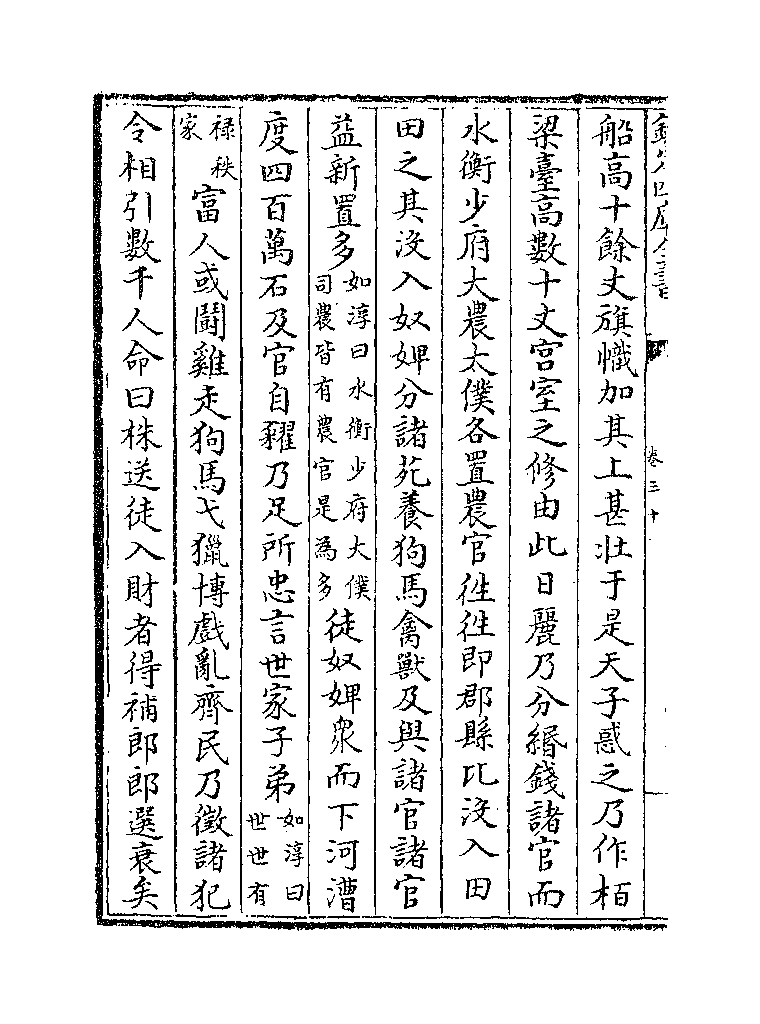 欽定四庫全書
卷三十
船高十餘丈旗幟加其上甚壯于是天子惑之乃作栢
梁臺高數十丈宮室之修由此日麗乃分緡錢諸官而
水衡少府大農太僕各置農官徃徃即郡縣比沒入田
田之其沒入奴婢分諸苑養狗馬禽獸及與諸官諸官
益新置多如淳曰水衡少府大僕司農皆有農官是為多徒奴婢衆而下河漕
度四百萬石及官自糴乃足所忠言世家子弟如淳曰世世有
禄秩家富人或鬭雞走狗馬弋獵博戲亂齊民乃徵諸犯
令相引數千人命曰株送徒入財者得補郎郎選衰矣